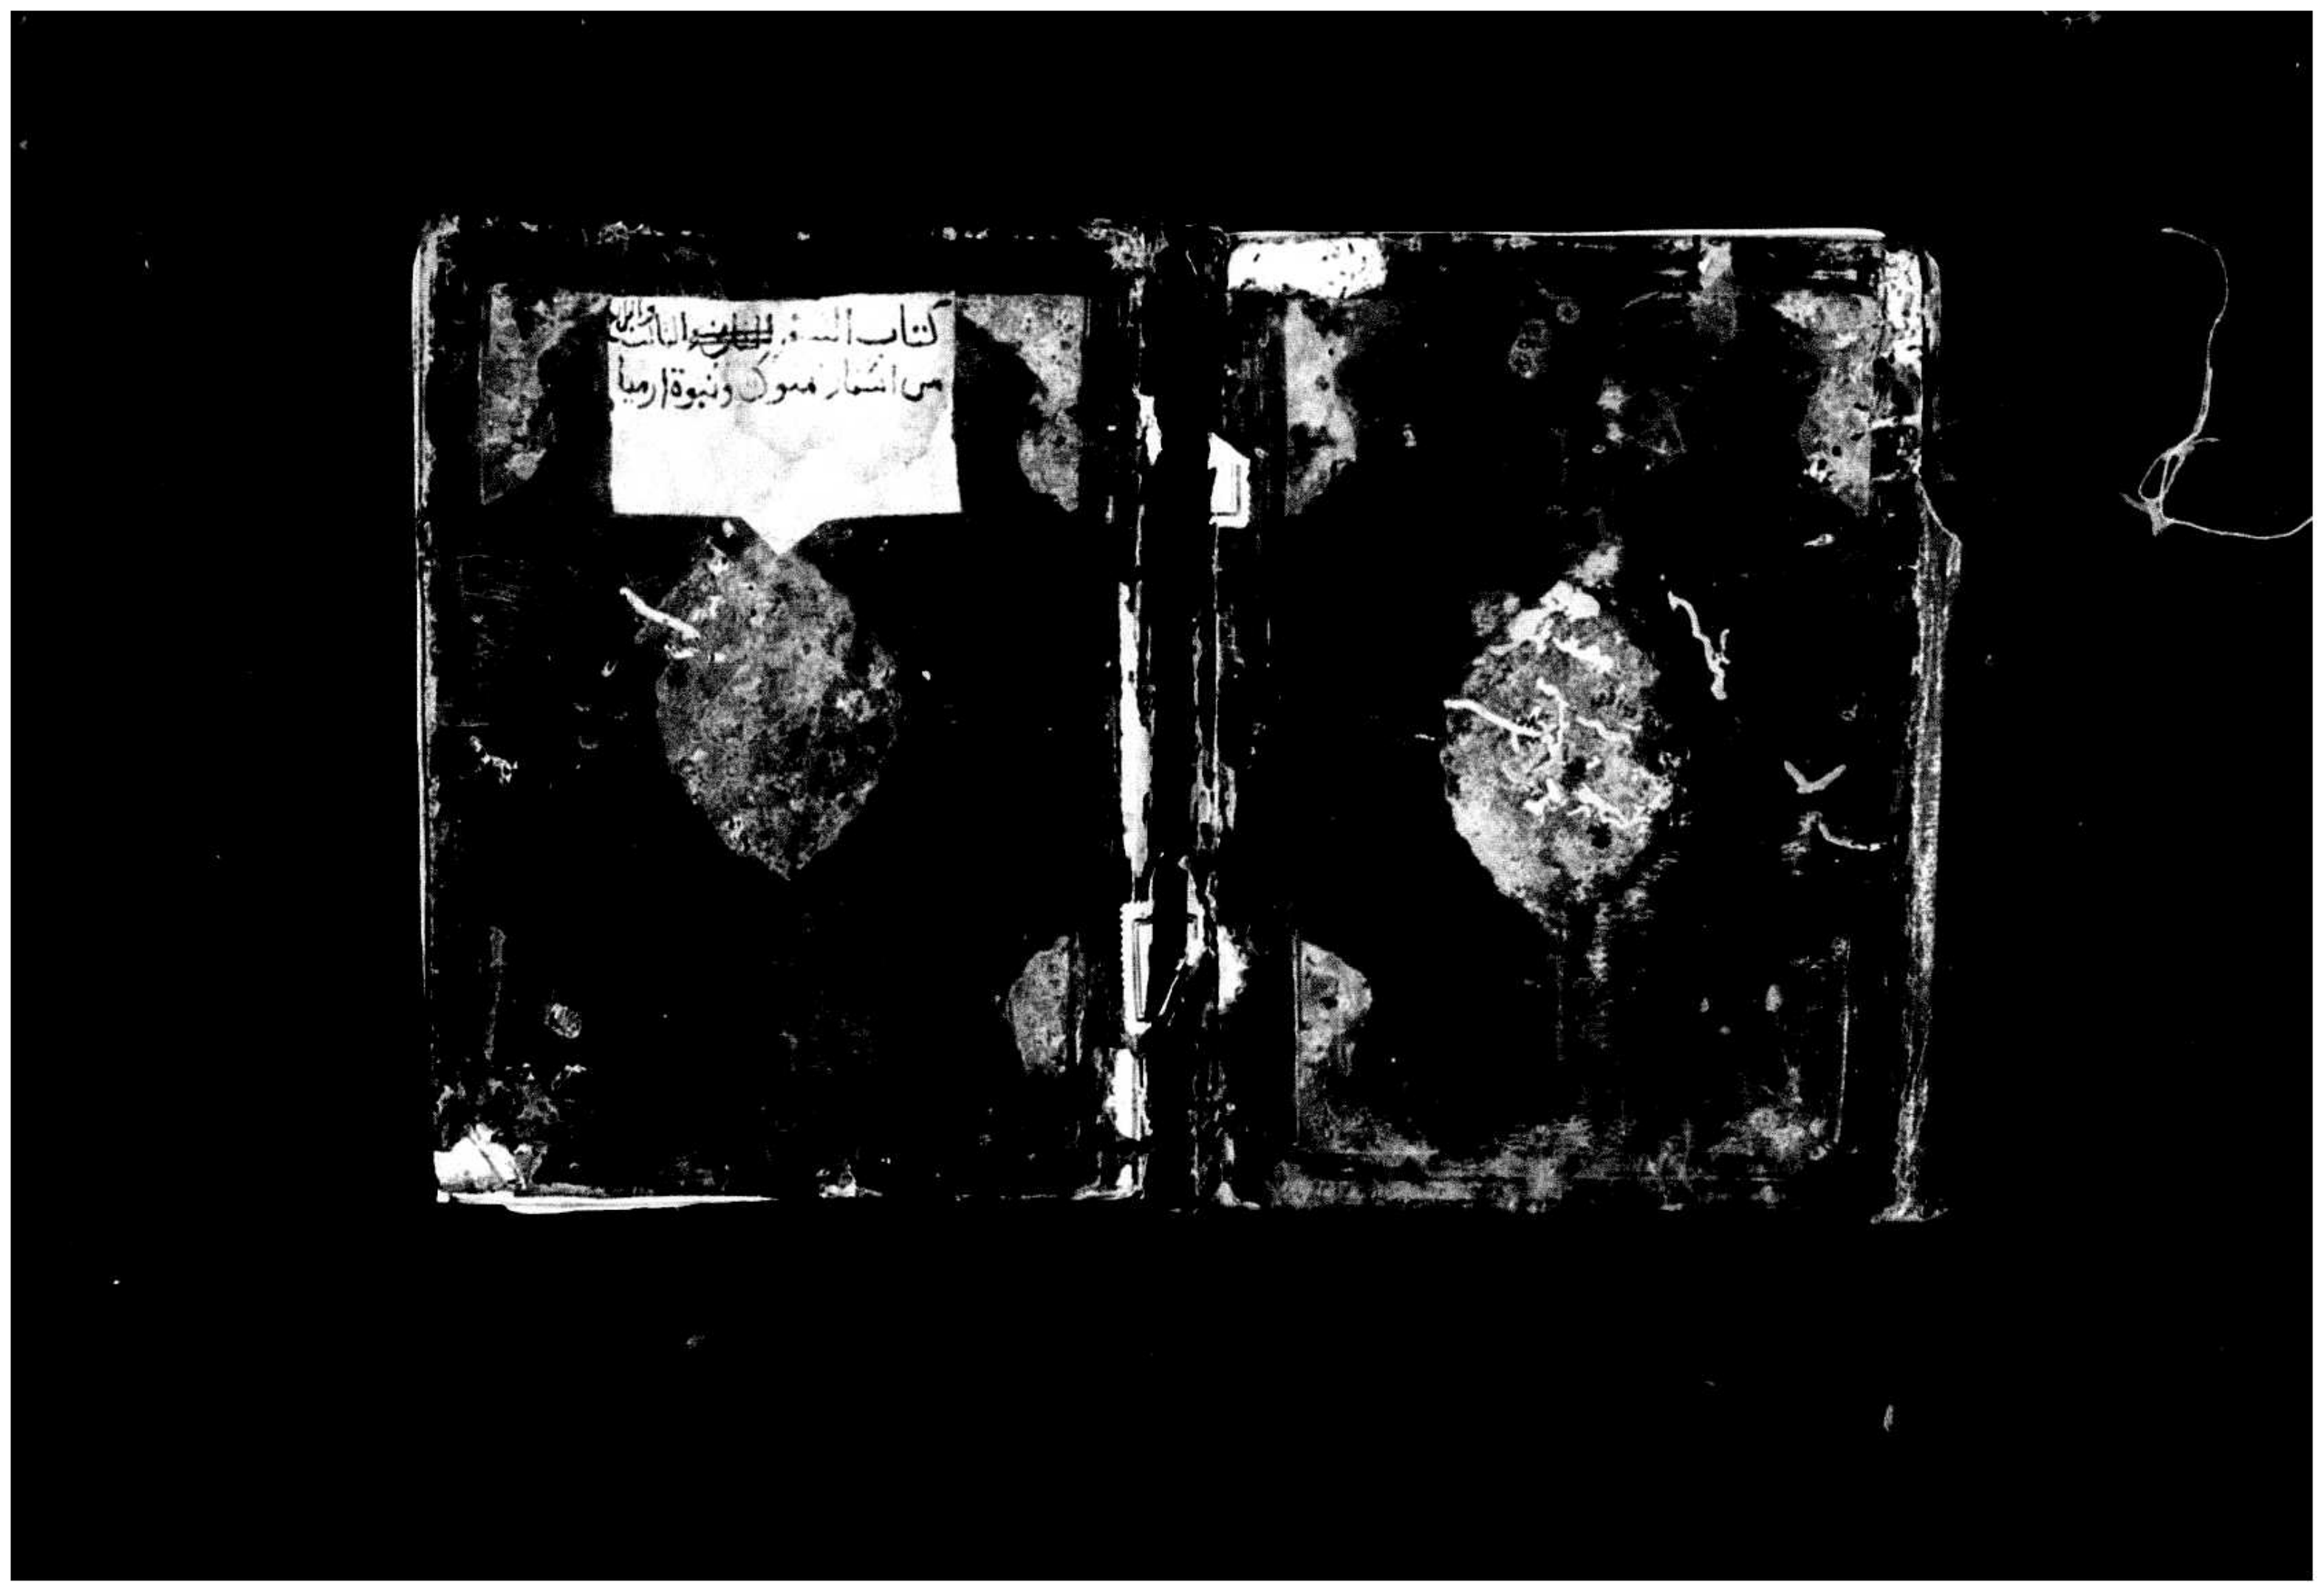 كتاب السفر الثالث والرابع
من اسفار ملوك ونبوة ارميا